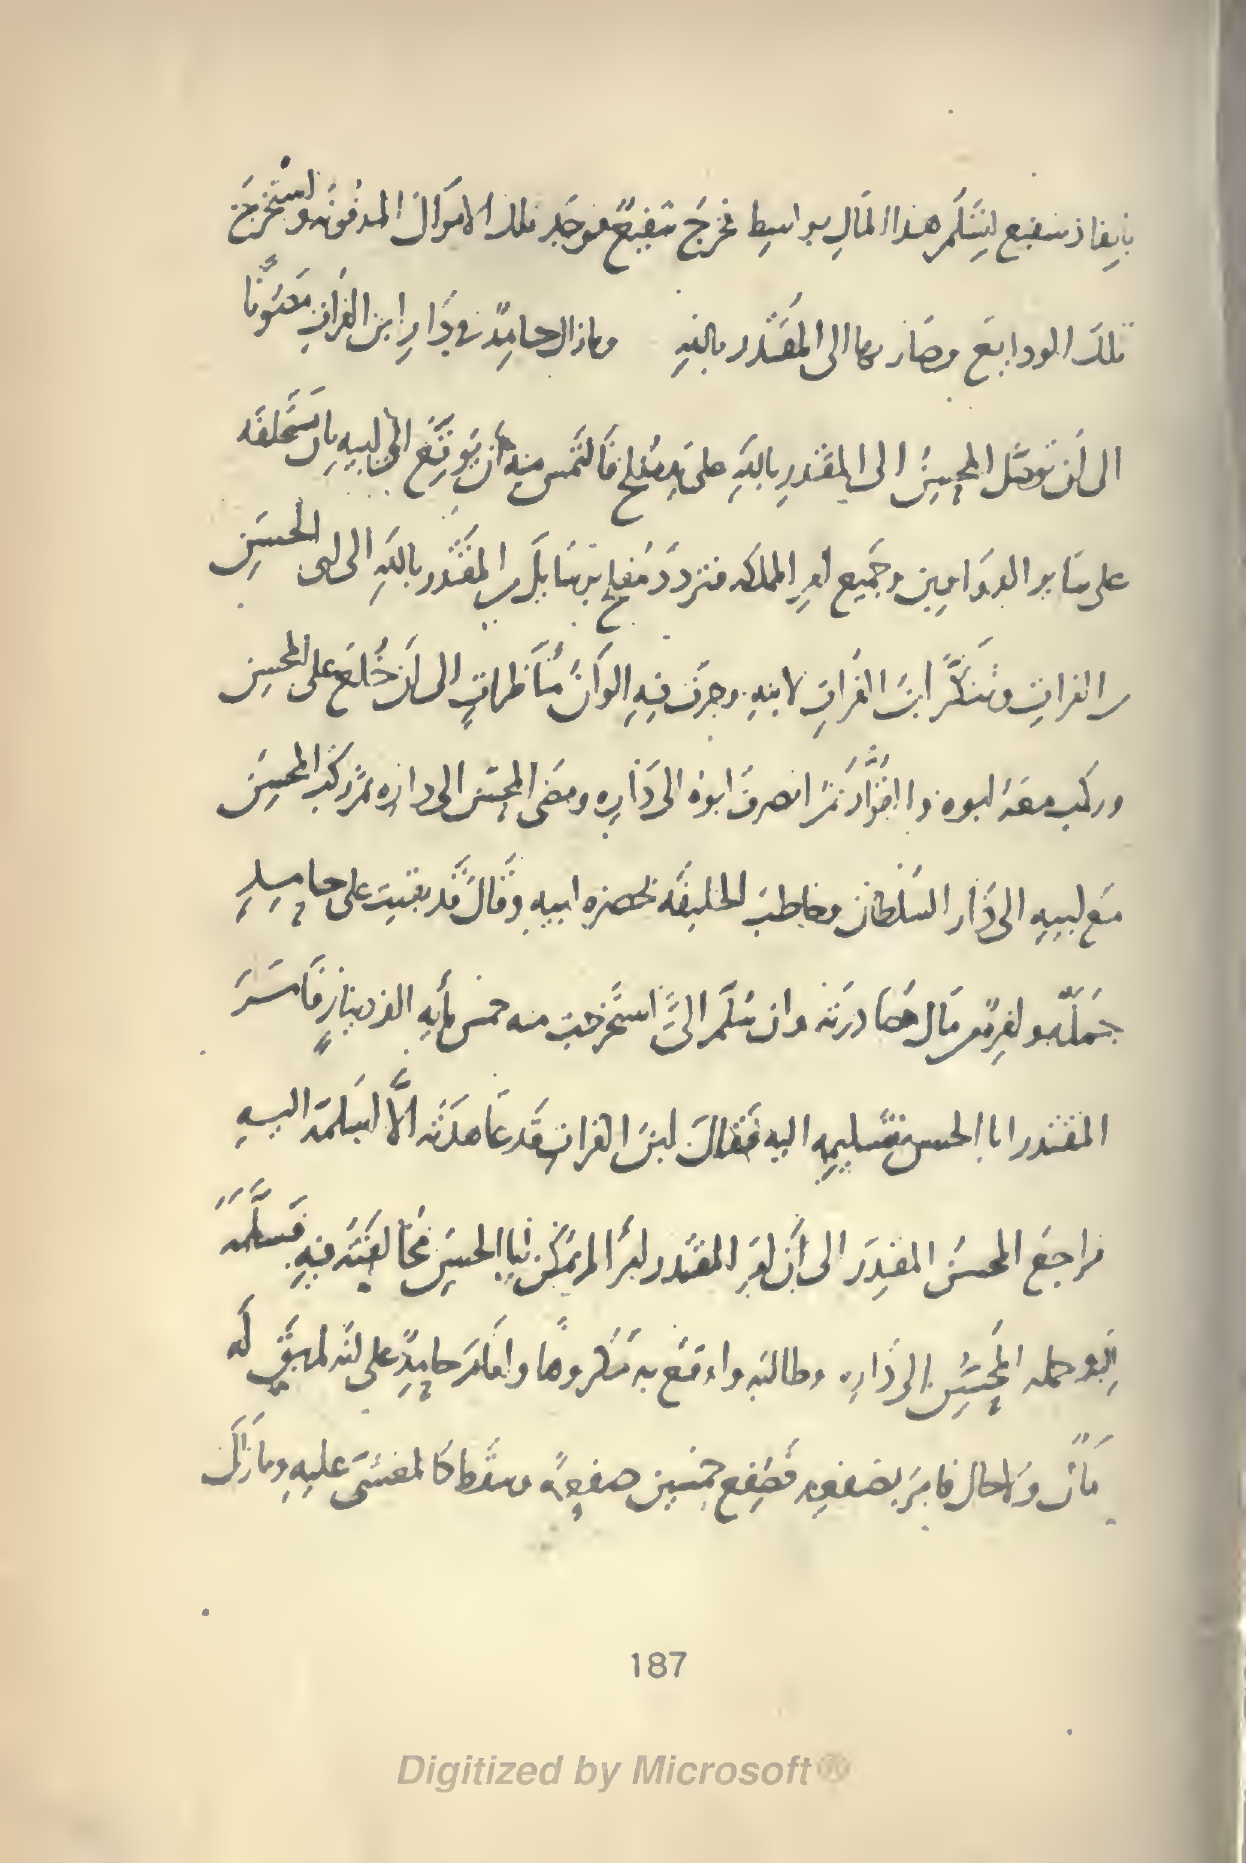 بإنفاذ شفيع ليتسلم هذا المال بواسط فخرج شفيع فوجد تلك الاموال المدفونة واستخرج
تلك الودايع وصار بها الى المقتدر بالله وما زال حامد في دار ابن الفرات مصونا
الى ان توصل المحسن الى المقتدر بالله على يد مفلح فالتمس منه ان يوقع الى ابيه بان يستخلفه
على ساير الدواوين وجميع امور المملكه فتردد مفلح برسايل من المقتدر بالله الى ابى الحسن
بن الفرات وتنكر ابن الفرات لابنه وجرت فيه الوان مناظرات الى ان خلع على المحسن
وركب معه ابوه والقواد ثم انصرف ابوه الى داره ومضى المحسن الى داره ثم ركب المحسن
مع ابيه الى دار السلطان وخاطب الخليفه بحضرة ابيه وقال قد بقيت على حامد
جملة من مال مصادرته وان سلم الى استخرجت منه خمس مأيه الف دينار فامر
المقتدر ابا الحسن بتسليمه اليه فقال ابن الفرات قد عاهدته الا اسلمه اليه
فراجع المحسن المقتدر الى ان امر المقتدر امرا لم يمكن ابا الحسن مخالفته فيه فسلمه
اليه وحمله المحسن الى داره وطالبه واوقع به مكروها واقام حامد على انه لم يبق له
مال ولا حال فامر بصفعه فصفع خمسين صفعة وسقط كالمغشى عليه وما زال
187
Digitized by Microsoft ®